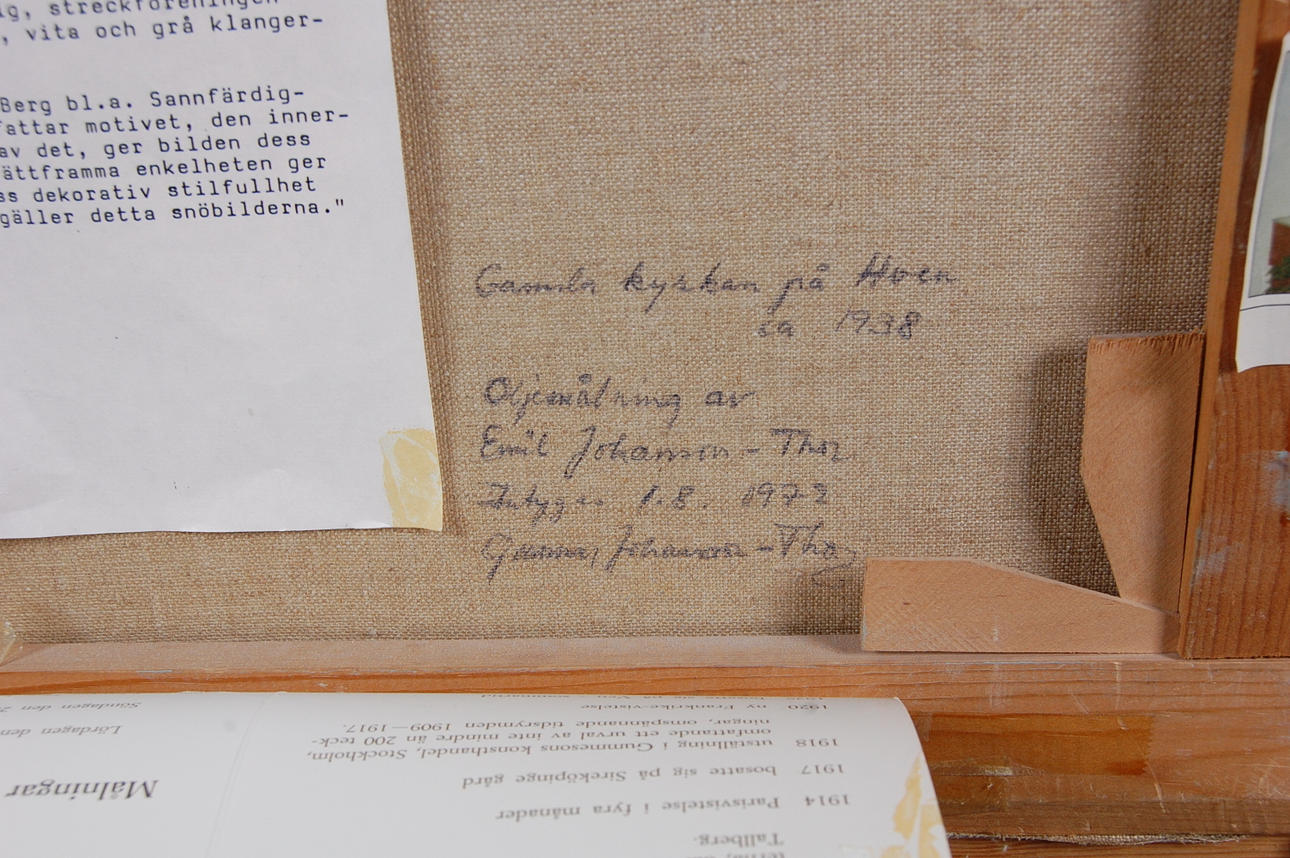 ig, streckföreningen
, vita och grå klanger-
Berg bl.a. Sannfärdig-
fattar motivet, den inner-
av det, ger bilden dess
ättframma enkelheten ger
ss dekorativ stilfullhet
gäller detta snöbilderna."
Gamla kyrkan på Hven
ca 1938
Oljemålning av
Emil Johanson-Thor
Intygas 1.8. 1973
Gunnar Johanson-Thor
Tallberg.
1914 Parisvistelse i fyra månader
1917 bosatte sig på Sireköpinge gård
1918 utställning i Gummesons konsthandel, Stockholm,
omfattande ett urval av inte mindre än 200 teck-
ningar, omspännande tidsrymden 1909—1917.
1920 ny Frankrike-vistelse
Målningar
Lördagen den
Söndagen den 2